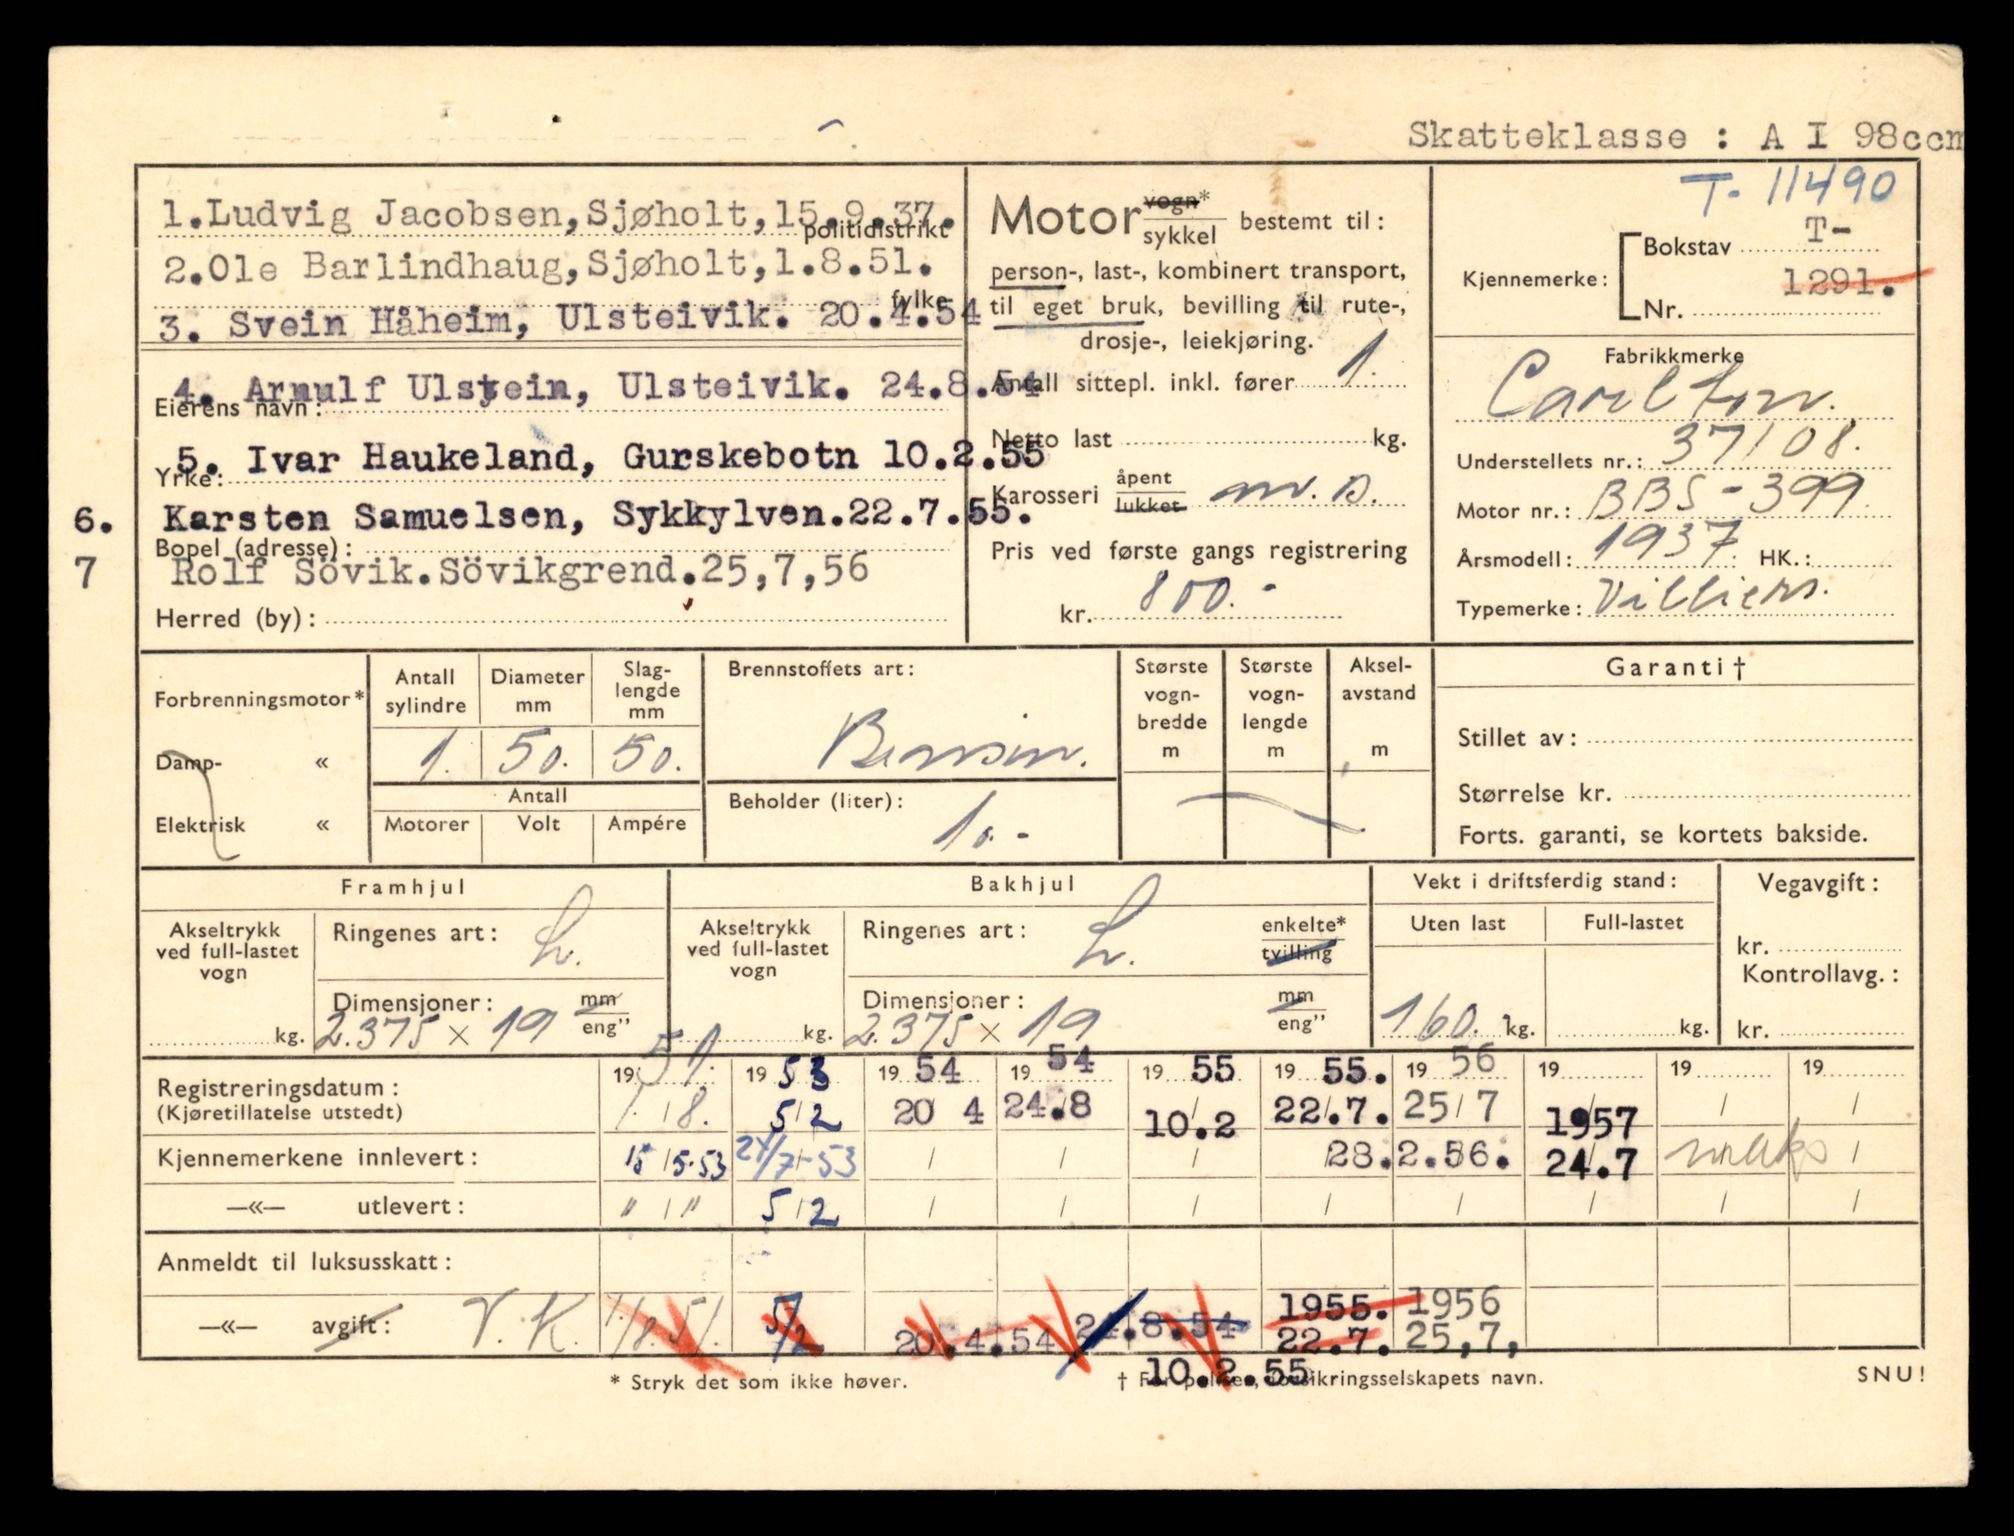 Skatteklasse : A I 98ccm
1.Ludvig Jacobsen,Sjøholt,15.9.37.
politidistrikt
2.Ole Barlindhaug,Sjøholt,1.8.51.
fylke
3. Svein Håheim, Ulsteivik. 20.4.54
4. Arnulf Ulstein, Ulsteivik. 24.8.54
Eierens navn:
5. Ivar Haukeland, Gurskebotn 10.2.55
Yrke:
6. Karsten Samuelsen, Sykkylven.22.7.55.
Bopel (adresse):
7 Rolf Sövik.Sövikgrend.25,7,56
Herred (by):
Motor vogn* sykkel bestemt til:
person-, last-, kombinert transport,
til eget bruk, bevilling til rute-,
drosje-, leiekjøring.
Antall sittepl. inkl. fører 1.
Netto last kg.
Karosseri åpent lukket m.s.
Pris ved første gangs registrering
kr. 800.-
T- 11490
Kjennemerke: Bokstav T-
Nr. 1291.
Fabrikkmerke
Carlton.
Understellets nr.: 37108.
Motor nr.: BBS-399
Årsmodell: 1937 HK.:
Typemerke: Villiers.
Forbrenningsmotor*
Damp- «
Elektrisk «
Antall sylindre 1.
Diameter mm 50.
Slag-lengde mm 50.
Antall
Motorer Volt Ampére
Brennstoffets art:
Bensin.
Beholder (liter):
10.-
Største vogn-bredde m
Største vogn-lengde m
Aksel-avstand m
Garanti †
Stillet av:
Størrelse kr.
Forts. garanti, se kortets bakside.
Framhjul
Akseltrykk ved full-lastet vogn
kg.
Ringenes art: L.
Dimensjoner: mm eng”
2.375 × 19
Bakhjul
Akseltrykk ved full-lastet vogn
kg.
Ringenes art: L. enkelte* tvilling
Dimensjoner: mm eng”
2.375 × 19
Vekt i driftsferdig stand:
Uten last Full-lastet
160. kg. kg.
Vegavgift:
kr.
Kontrollavg.:
kr.
Registreringsdatum: 1951. 1953 1954 1954 1955 1955. 1956 19 19 19
(Kjøretillatelse utstedt) 1/8. 5/2 20 4 24.8 10.2 22.7. 25/7 1957
Kjennemerkene innlevert: 15/5-53 24/7-53 28.2.56. 24.7
—«— utlevert: " / " 5/2
Anmeldt til luksusskatt:
—«— avgift: V.K. 1/8.51. 5/2 20.4.54 24.8.54 1955. 22.7. 1956 25,7,
10.2.55
* Stryk det som ikke høver.
† For polisen, forsikringsselskapets navn.
SNU!